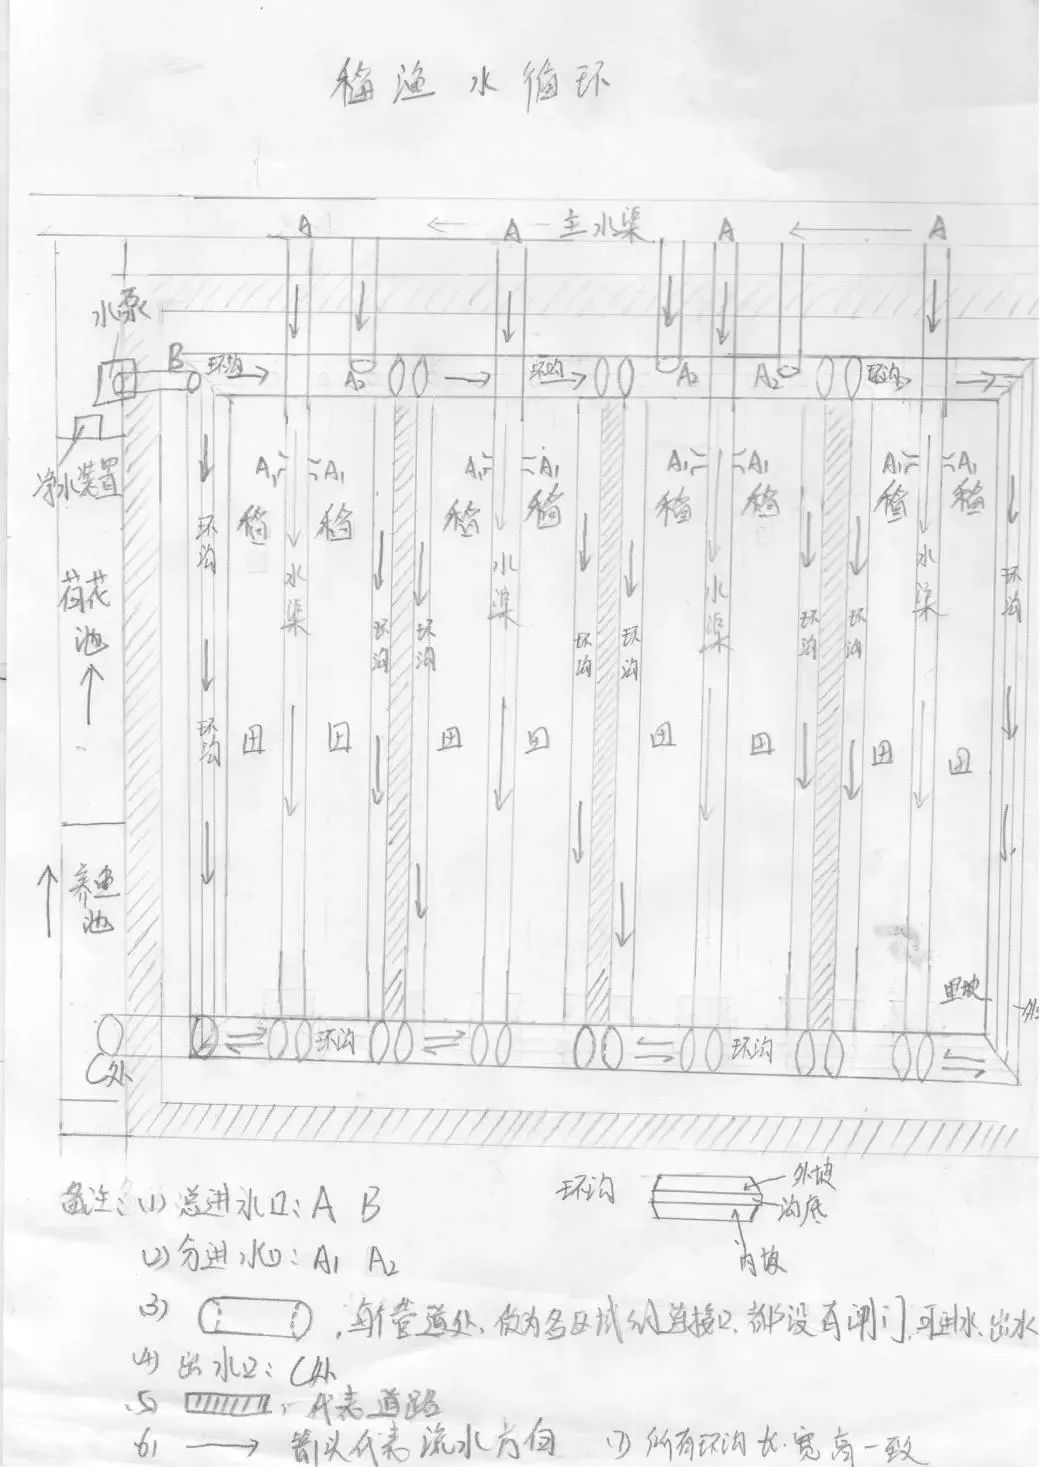 稻渔水循环
A ← A 主水渠 A ← A
水泵
B 环沟 → A₂ → 环沟 → A₂ A₂ 环沟 →
净水装置
A₁ A₁ A₁ A₁ A₁ A₁ A₁ A₁
稻 稻 稻 稻 稻 稻 稻 稻
环沟 水渠 环沟 环沟 水渠 环沟 环沟 水渠 环沟 环沟 水渠 环沟
荷花池
环沟 田 田 田 田 田 田 田 田
养鱼池
里坡
C处 环沟 环沟
环沟 外坡
沟底
内坡
备注:(1)总进水口:A B
(2)分进水口:A₁ A₂
(3) ,每个管道处,做为各区域的连接口,都设有闸门,可进水、出水
(4)出水口:C处
(5) ,代表道路
(6) → 箭头代表流水方向 (7)所有环沟长、宽、高一致